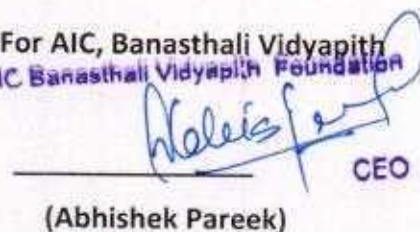 For AIC, Banasthali Vidyapith
IC Banasthali Vidyapith Foundation
CEO
(Abhishek Pareek)